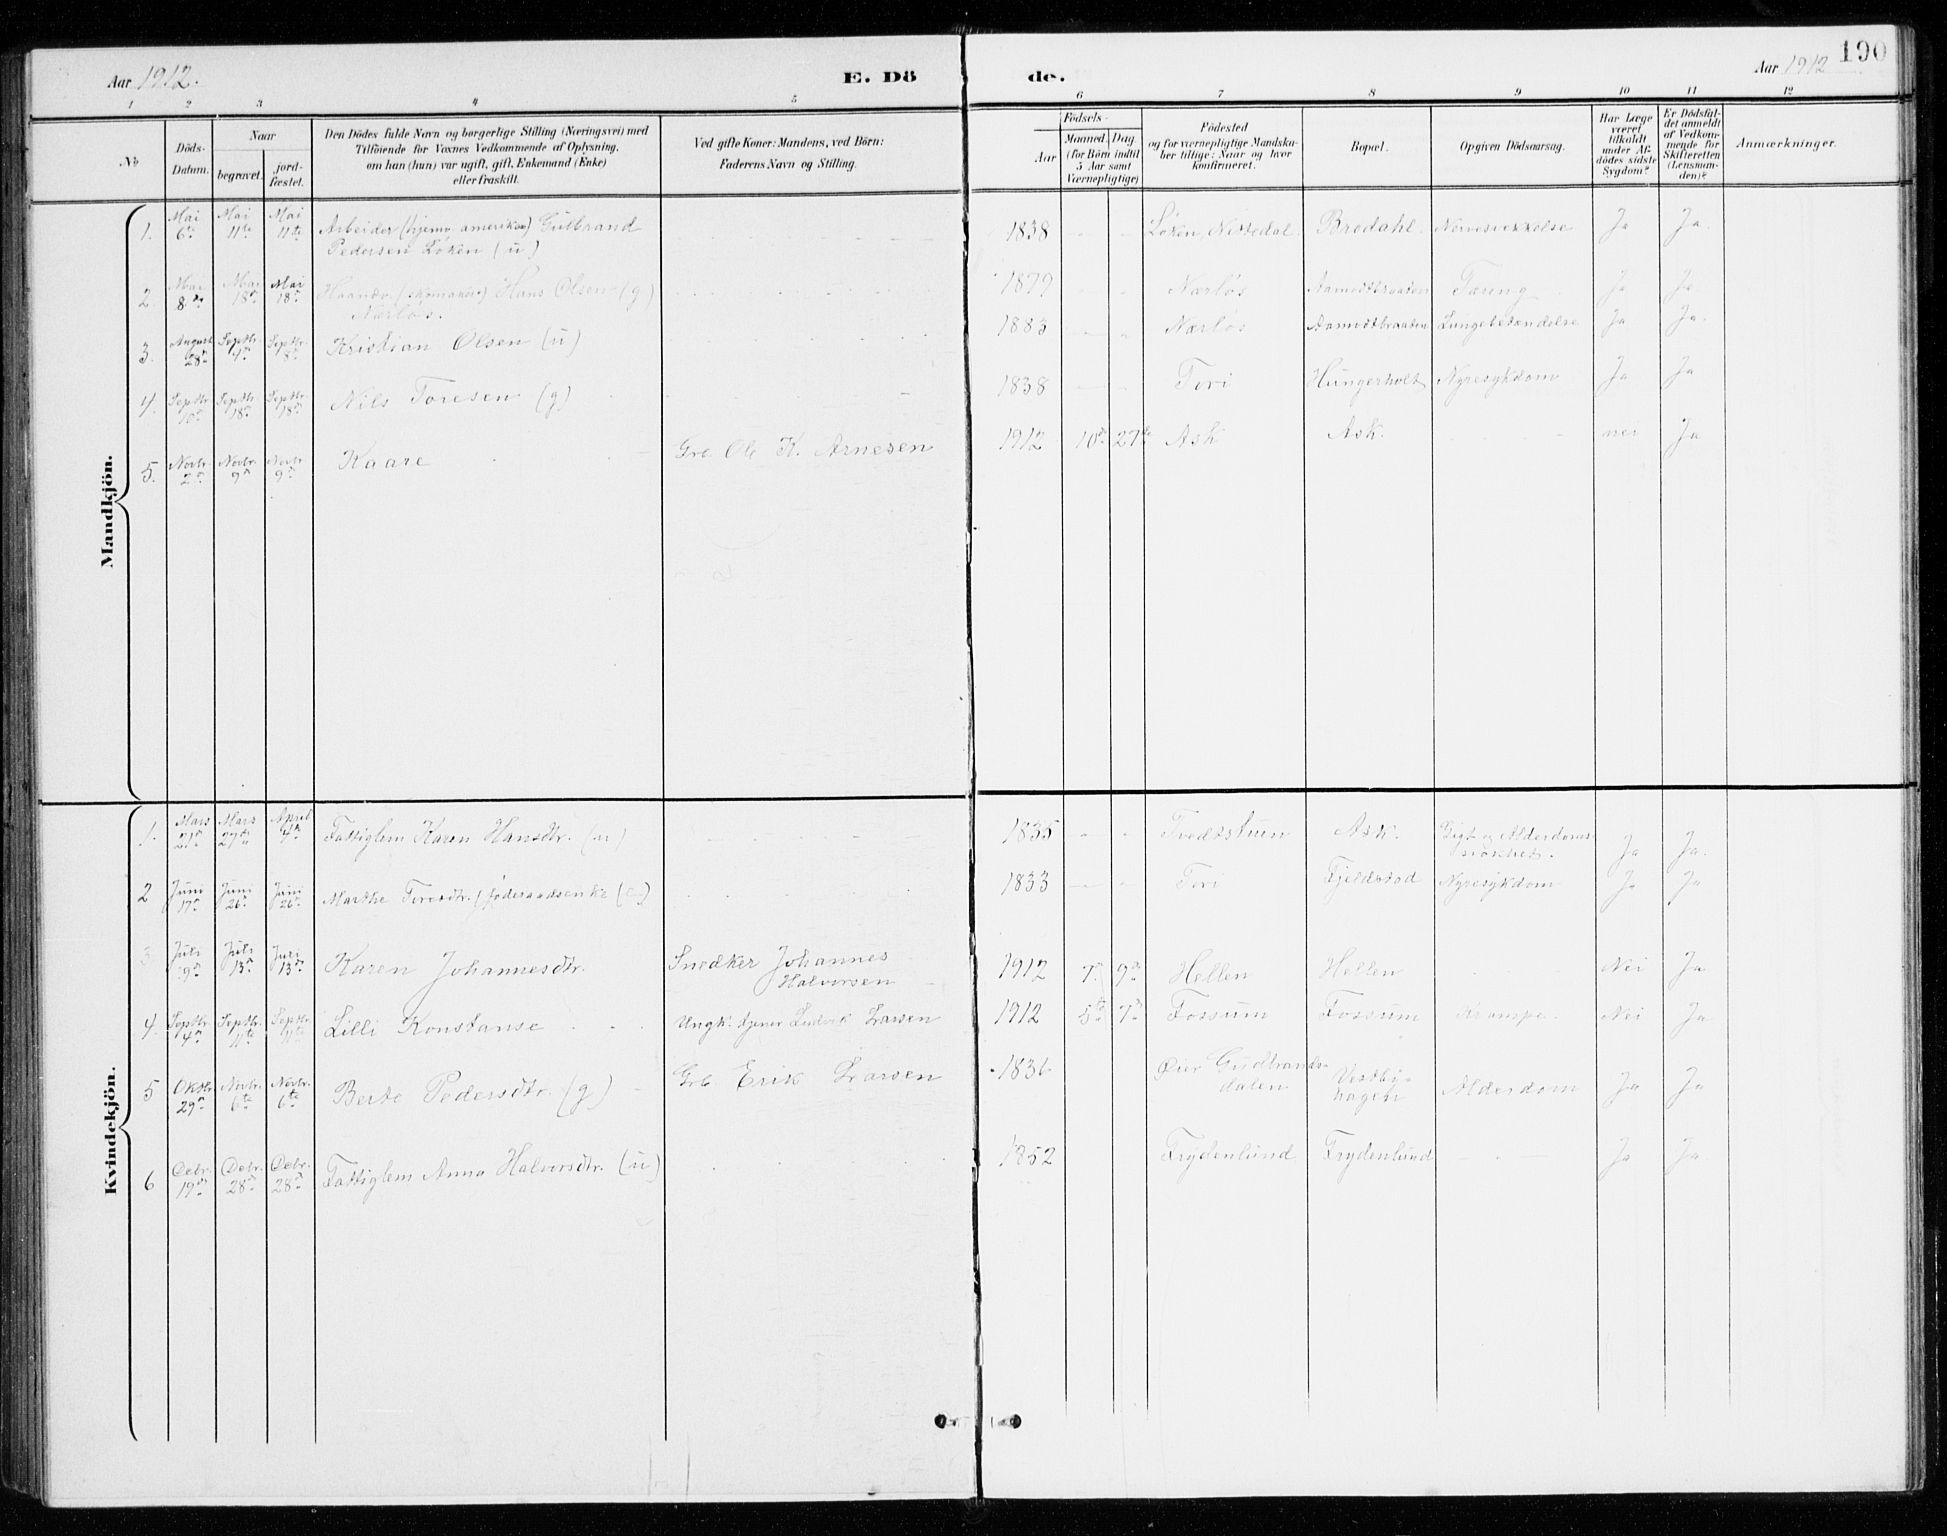 190
Aar 1912.
E. Dö
de.
Aar 1912
1 2 3 4 5 6 7 8 9 10 11 12
No
Döds-
Datum.
Naar
begravet.
jord-
fæstet.
Den Dödes fulde Navn og borgerlige Stilling (Næringsvei) med
Tilföiende for Voxnes Vedkommende af Oplysning,
om han (hun) var ugift, gift, Enkemand (Enke)
eller fraskilt.
Ved gifte Koner: Mandens, ved Börn:
Faderens Navn og Stilling.
Födsels-
Aar
Maaned. Dag.
(for Börn indtil
5 Aar samt
Værnepligtige)
Födested
og for værnepligtige Mandska-
ber tillige: Naar og hvor
konfirmeret.
Bopæl.
Opgiven Dödsaarsag.
Har Læge
været
tilkaldt
under Af-
dödes sidste
Sygdom?
Er Dödsfal-
det anmeldt
af Vedkom-
mende for
Skifteretten
(Lensman-
den)?
Anmærkninger.
Mandkjön.
1. Mai 6te Mai 11te Mai 11te Arbeider (hjemv. amerikan) Gulbrand
Pedersen Løken (u) 1838 Løken, Nittedal. Brodahl. Nervesvekkelse Ja Ja.
2. Mai 8de Mai 18de Mai 18de Haandv. (skomaker) Hans Olsen (g)
Nærløs. 1879 Nærløs Aamodtbraaten Tæring Ja Ja
3. August 28de Septbr. Septbr. 8de Kristian Olsen (u) 1883 Nærløs Aamodtbraaten Lungebetændelse Ja Ja.
4. Septbr. 10de Septbr. 18de Septbr. 18de Nils Toresen (g) 1838 Teri Hungerholt Nyresykdom Ja Ja
5. Novbr. 2de Novbr. 9de Novbr. 9de Kaare Grb. Ole K. Arnesen 1912 10de 27de Ask Ask. nei Ja
Kvindekjön.
1. Mars 21de Mars 27de April 4de Fattiglem Karen Hansdtr. (u) 1835 Tvedtstuen Ask. Gigt og Alderdoms-
svakhet. Ja Ja.
2 Juni 17de Juni 26de Juni 26de Marthe Toresdtr. føderaadsenke (e) 1833 Teri Fjeldstad Nyresykdom Ja Ja
3 Juli 9de Juli 13de Juli 13de Karen Johannesdtr. Snedker Johannes
Halvorsen 1912 7de 9de Hellen Hellen Nei Ja
4. Septbr. 4de Septbr. 11te Septbr. 11te Lilli Konstanse Ungk. tjener Ludvik Larsen 1912 5te 7de Fossum Fossum Krampe. Nei Ja
5 Oktbr. 29de Novbr. 6te Novbr. 6te Berte Pedersdtr. (g) Grb. Erik Larsen 1836 Øier Gudbrands-
dalen Vestby-
hagen Alderdom Ja Ja
6 Debr. 19de Debr. 28de Debr. 28de Fattiglem Anna Halvorsdtr. (u) 1852 Frydenlund Frydenlund Ja Ja.